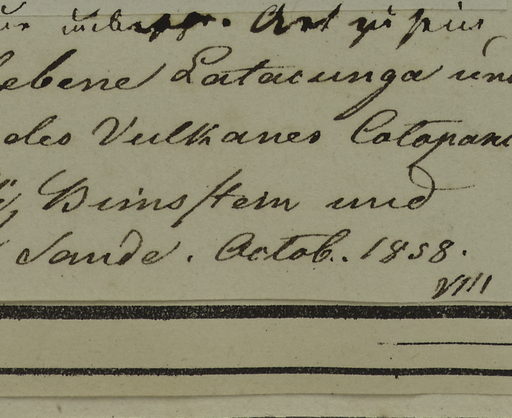 Art zu sein
ebene Latacunga und
des Vulkanes Cotopaxi
Bimsstein und
Sande. Octob. 1858.
VIII